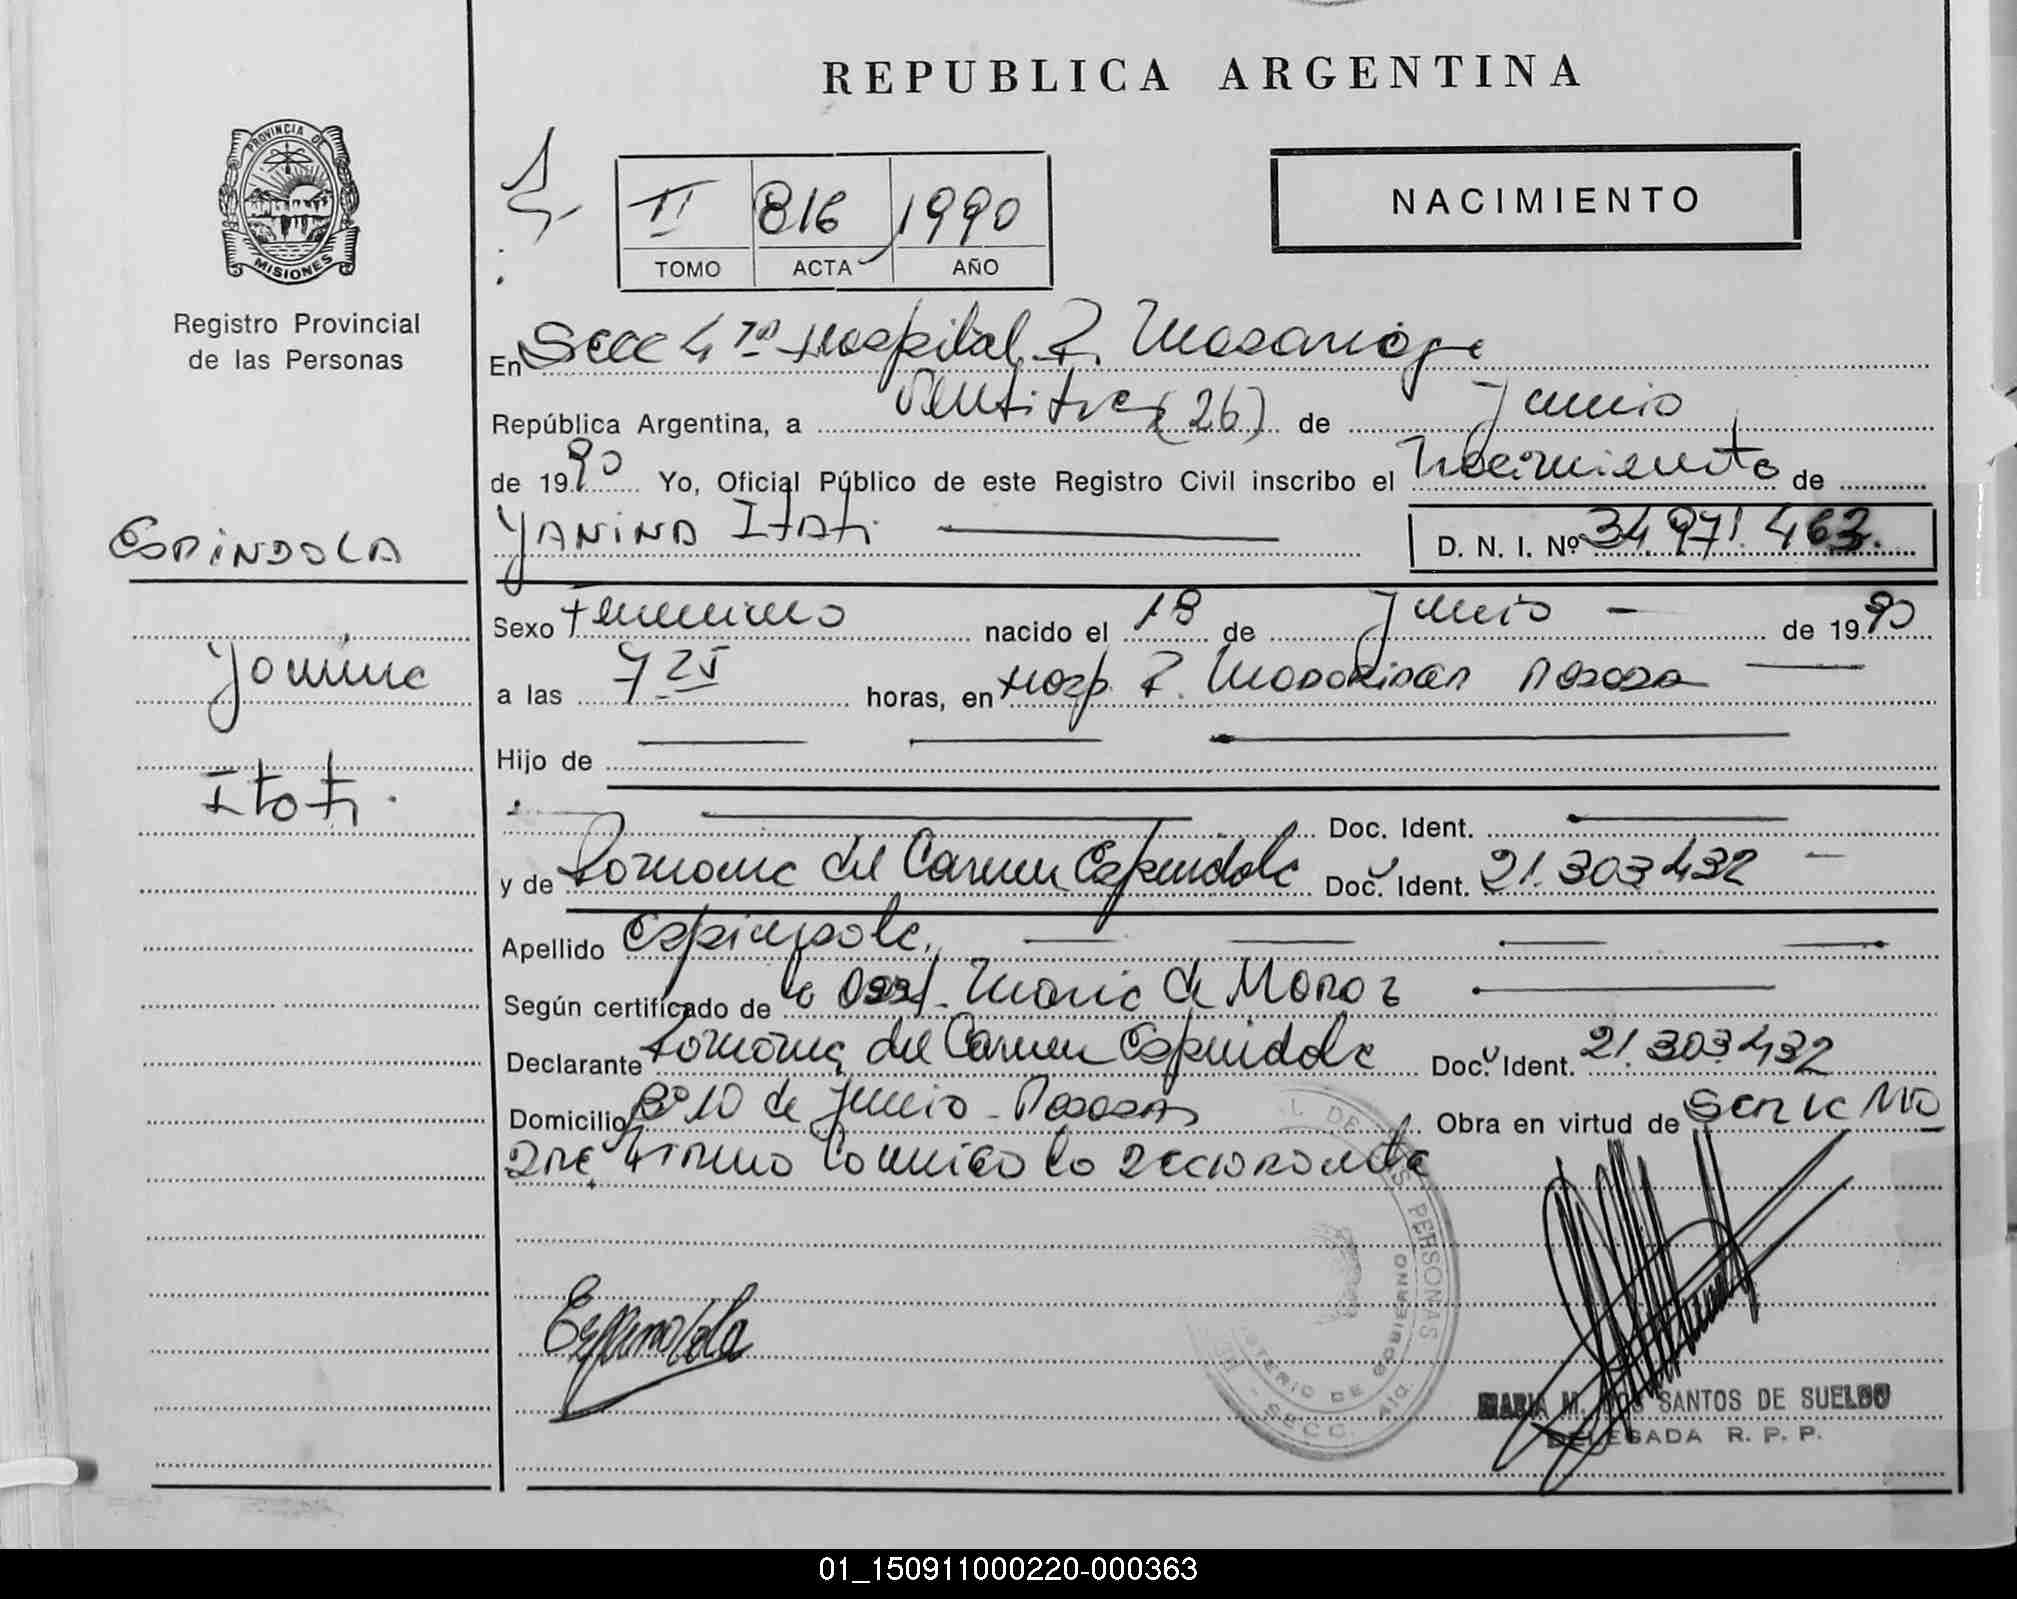 REPUBLICA ARGENTINA
PROVINCIA DE
MISIONES
Registro Provincial
de las Personas
NACIMIENTO
II 816 1990
TOMO ACTA AÑO
En Secc 4 Hospital R. Madariaga
República Argentina, a (26) de Junio
de 1990 Yo, Oficial Público de este Registro Civil inscribo el Nacimiento de
YANINA ITATI D. N. I. Nº 34.971.463.
ESPINDOLA
Yanina
Itati.
Sexo Femenino nacido el 18 de Junio de 1990
a las 7 25 horas, en Hosp. R. Madariaga Posadas
Hijo de
Doc. Ident.
y de Romona del Carmen Espindola Doc. Ident. 21.303.432
Apellido Espindola
Según certificado de la Obst. Maria de
Declarante Romona del Carmen Espindola Doc. Ident. 21.303.432
Domicilio Bº 10 de Junio - Posadas Obra en virtud de
la declarante
Espindola
L DE LAS PERSONAS
MINISTERIO DE GOBIERNO
SECC. 4ta.
MARIA M. DOS SANTOS DE SUELDO
DELEGADA R. P. P.
01_150911000220-000363